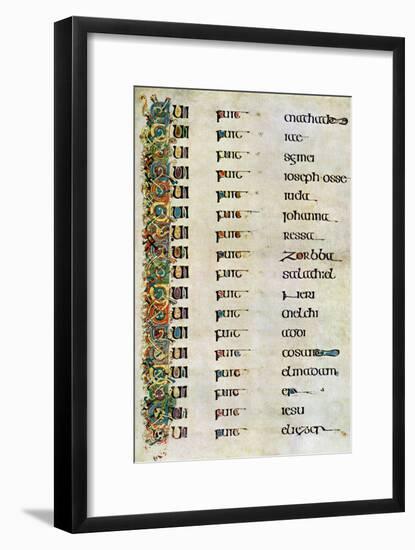 Qui fuit mathathie
Qui fuit iae
Qui fuit semei
Qui fuit ioseph osse
Qui fuit iuda
Qui fuit iohanna
Qui fuit ressa
Qui fuit zorbba
Qui fuit salathiel
Qui fuit neri
Qui fuit melchi
Qui fuit addi
Qui fuit cosam
Qui fuit elmadum
Qui fuit er
Qui fuit iesu
Qui fuit eliezer